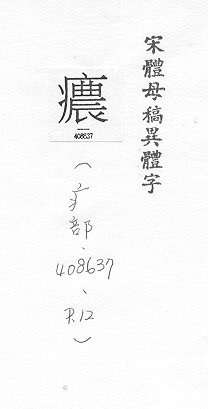 宋體母稿異體字
癑
408637
（疒部、408637、P.12）